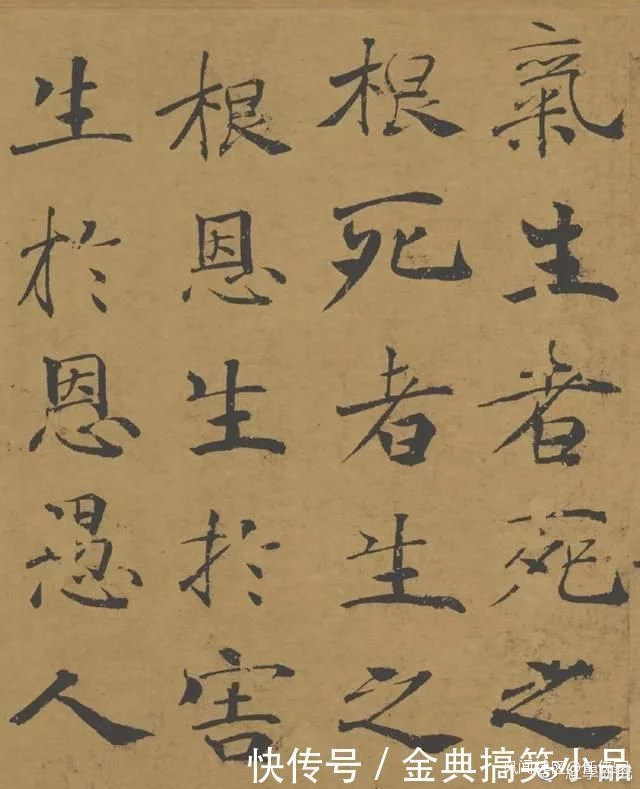 氣生者死之
根死者生之
根恩生於害
生於恩愚人
快传号 / 金典搞笑小品